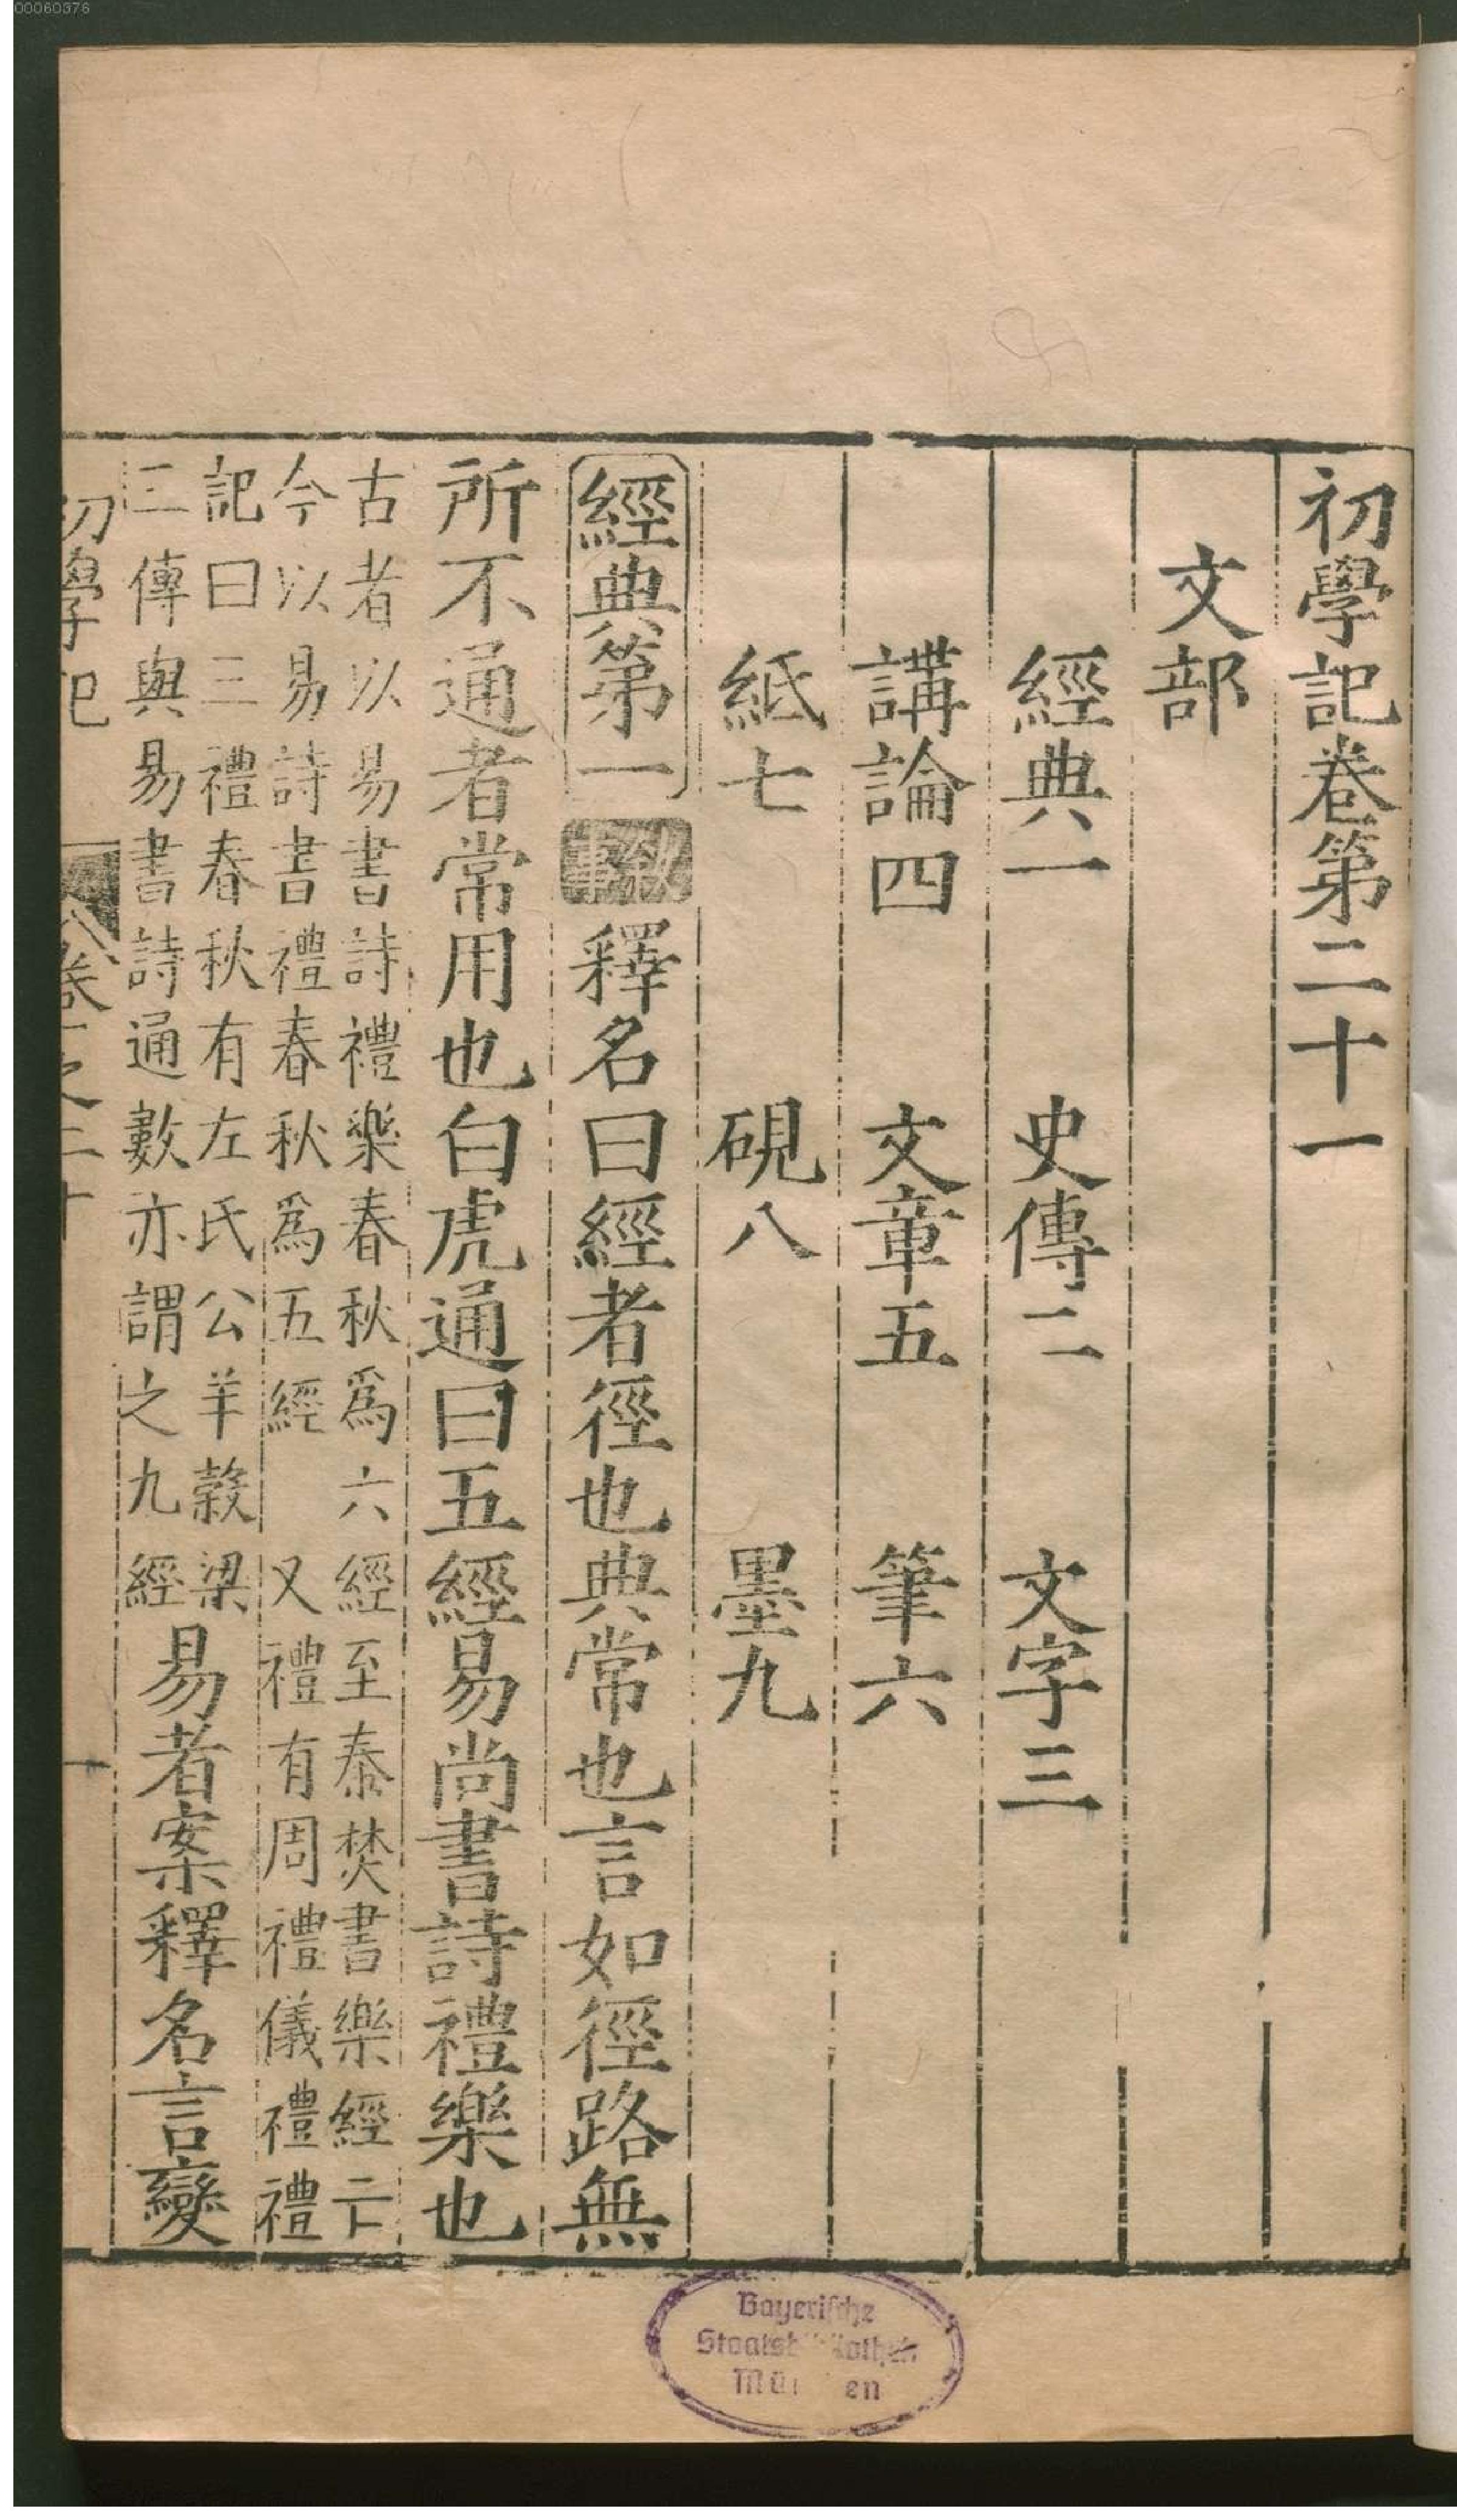 00060376
初學記卷第二十一
文部
經典一 史傳二 文字三
講論四 文章五 筆六
紙七 硯八 墨九
經典第一 敘事 釋名曰經者徑也典常也言如徑路無
所不通者常用也白虎通曰五經易尚書詩禮樂也
古者以易書詩禮樂春秋爲六經至秦焚書樂經亡
今以易詩書禮春秋爲五經 又禮有周禮儀禮禮
記曰三禮春秋有左氏公羊穀梁
三傳與易書詩通數亦謂之九經
易者案釋名言變
初學記 卷之二十 一
Bayerische
Staatsbibliothek
München